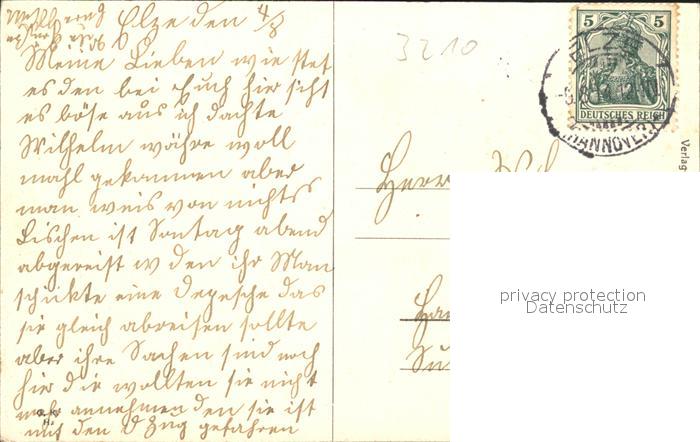 Elze den 4/8
Meine Lieben wie stet
es den bei Euch hier siht
es böse aus ich dachte
Wilhelm währe woll
mahl gekommen aber
man weis von nichts
Lischen ist Sontag abend
abgereist w den ihr Man
schickte eine Depesche das
sie gleich abreisen sollte
aber ihre Sachen sind noch
hier die wollten sie nicht
mehr annehmen den sie ist
mit den D Zug gefahren
3210
Herr
5 5
DEUTSCHES REICH
ELZE
(HANNOVER)
Verlag
privacy protection
Datenschutz